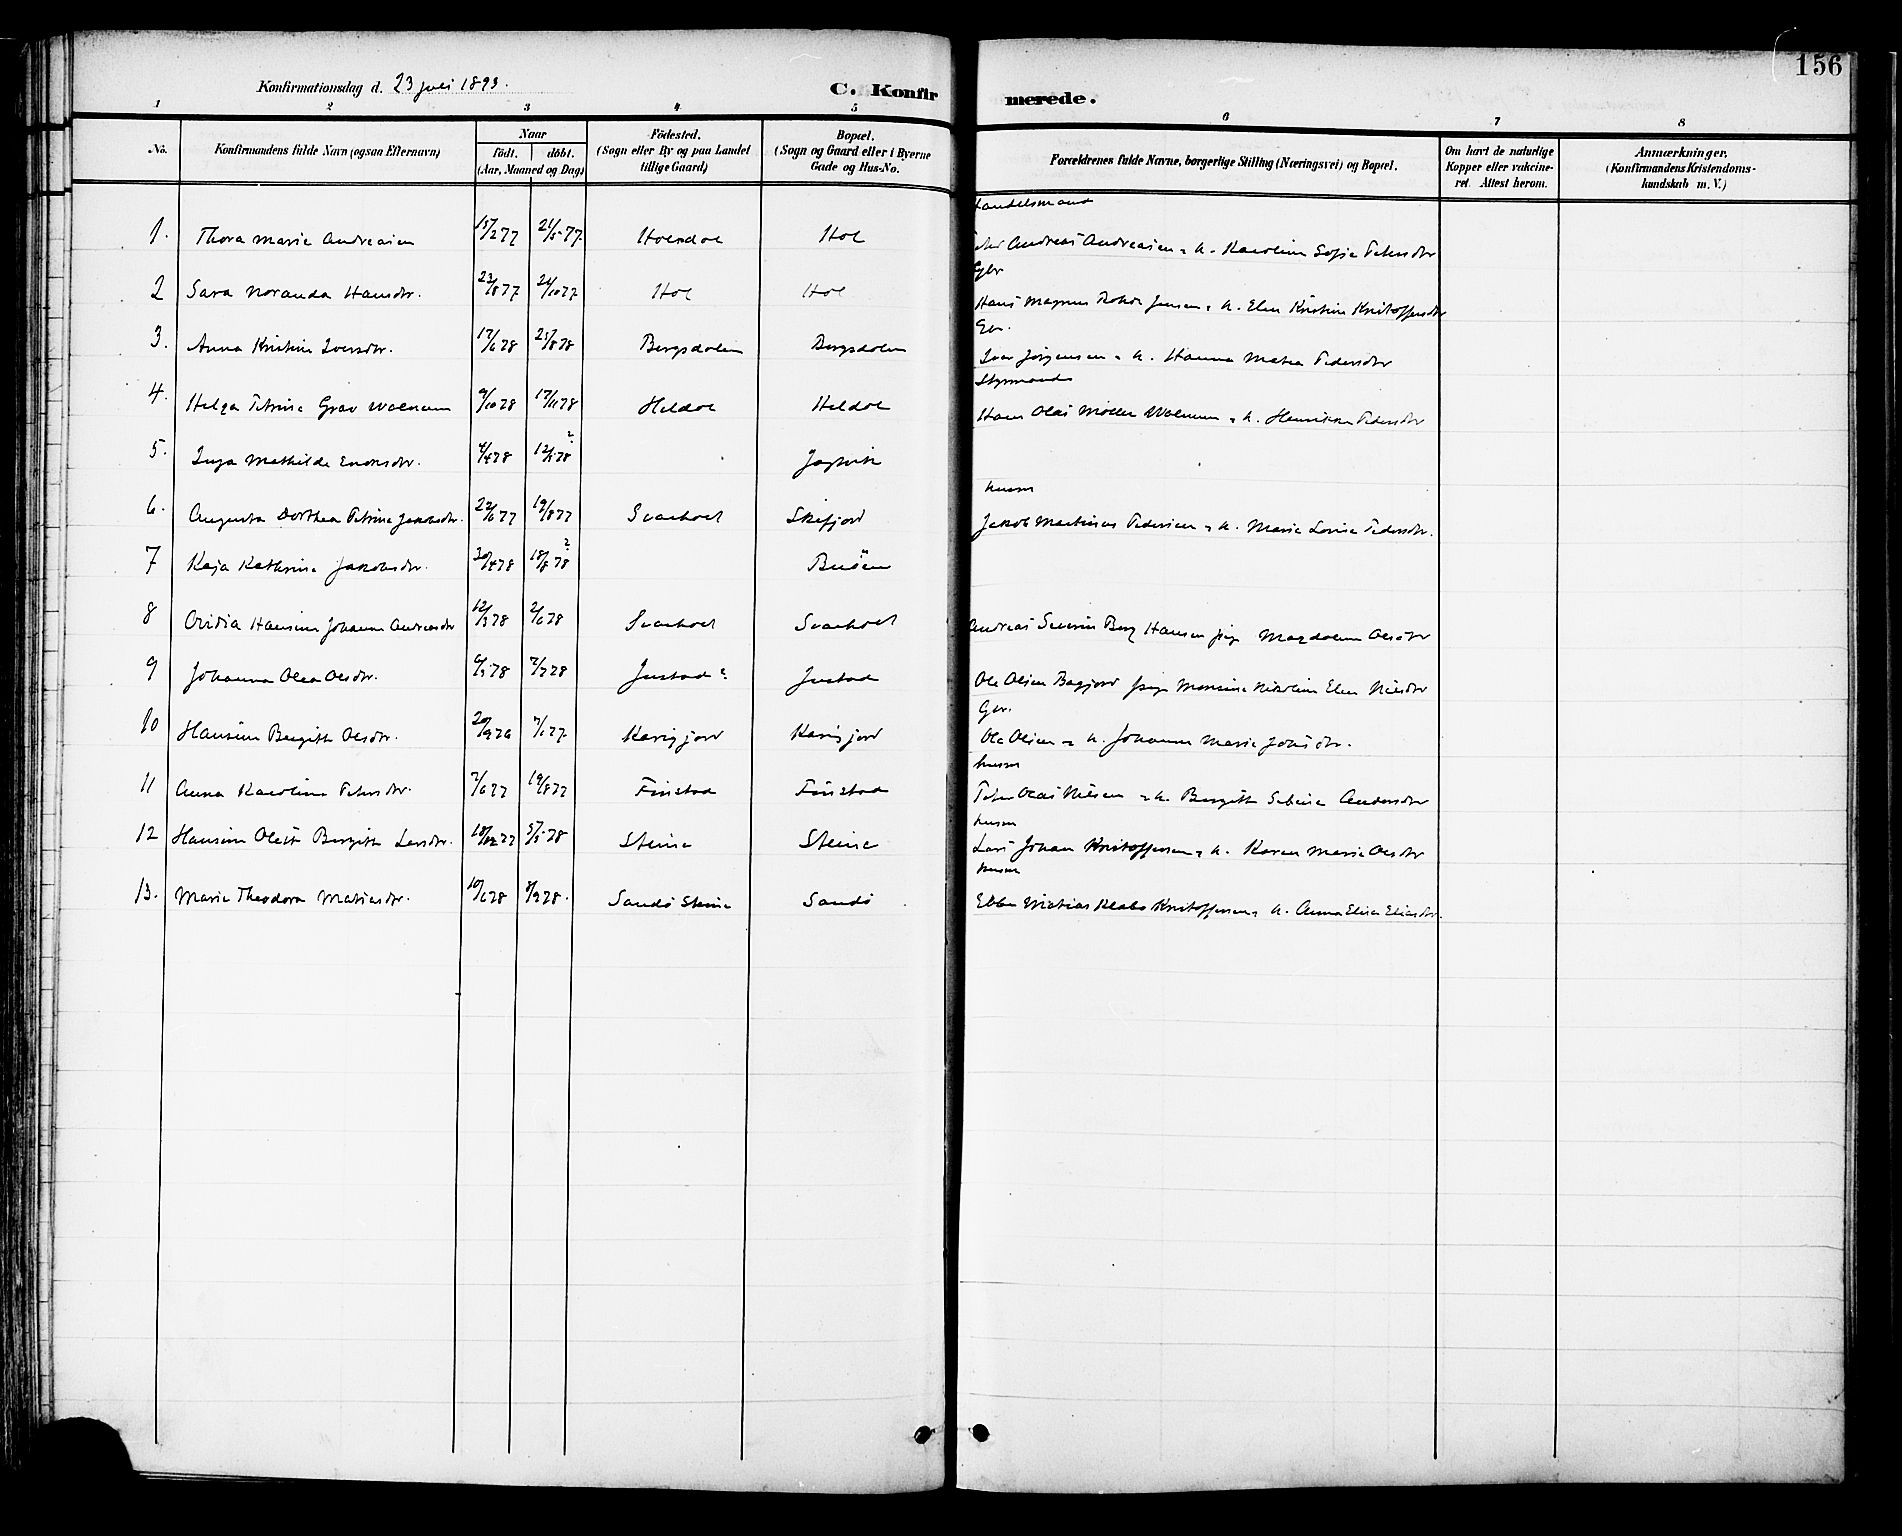 156
Konfirmationsdag d. 23 juli 1893.
C. Konfir
merede.
1 2 3 4 5 6 7 8
No. Konfirmandens fulde Navn (ogsaa Efternavn) Naar födt. döbt. (Aar, Maaned og Dag) Födested. (Sogn eller By og paa Landet tillige Gaard) Bopæl. (Sogn og Gaard eller i Byerne Gade og Hus-No. Forældrenes fulde Navne, borgerlige Stilling (Næringsvei) og Bopæl. Om havt de naturlige Kopper eller vakcineret. Attest herom. Anmærkninger. (Konfirmandens Kristendomskundskab m. V.)
Handelsmand
1. Thora Marie Andreasen 15/2 77 21/5 77. Holsdal Hol Andreas Andreasen o h. Karoline Sofie Petersdtr
Gbr
2 Sara Noranda Hansdtr. 23/8 77 21/10 77 Hol Hol Hans Magnus Jensen o h. Elen Kristine Kristoffersdtr
Gbr.
3. Anna Kristine Iversdtr. 17/6 78 25/8 78 Bergsdalen Bergsdalen Ivar Jörgensen o h. Hanna Matea Pedersdtr
Styrmand
4. Helga Petrine Grav Wolmann 9/10 78 17/11 78 Heldal Heldal Hans Olai Möller o h. Henrikke Pedersdtr
5. Inga Mathilde 4/4 78 12/5 78 ?
husm
6. Augusta Dorthea Petrine Jakobsdtr. 22/6 77 19/8 77 Svarholt Skifjord Jakob Martinus Pedersen o h. Marie Lovise Pedersdtr.
7 Kaja Kathrine Jakobsdtr. 30/4 78 18/8 78 ?
8 Ovidia Hansine Johanna Andreasdtr 12/3 78 2/6 78 Svarholt Svarholt Andreas Severin Berg Hansen pige Magdalena Olsdtr
9 Johanna Olea Olsdtr. 6/5 78 7/7 78 Justad ? Justad Ole Olsen pige Nikoline Elen Nilsdtr
Gbr.
10 Hansine Bergitte Olsdtr. 20/9 76 7/1 77. Ole Olsen o h. Johanna Marie dtr.
husm
11 Anna Karoline Petersdtr. 7/6 77 19/8 77 Finstad Finstad Peter Olai Nilsen o h. Bergitte Andersdtr
husm
12 Hansine Bergitte Larsdtr. 18/12 77 5/5 78 Steine Steine Lars Johan Kristoffersen o h. Karen Marie Olsdtr
husm
13. Marie Theodora Matiasdtr. 10/6 78 8/9 78. Sandö Steine Sandö Matias Kristoffersen o h. Anna Elisa Eliasdtr.